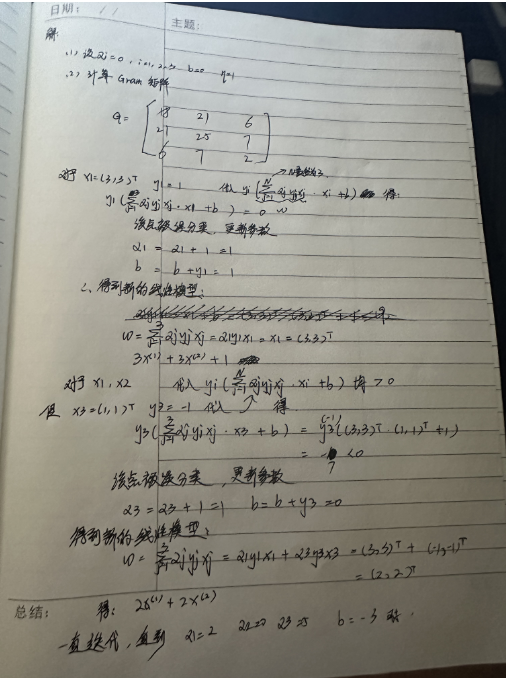 日期: / /
主题:
解:
(1) 设αi=0, i=1,2,3 b=0 η=1
(2) 计算 Gram 矩阵
G= [ 18 21 6
21 25 7
6 7 2 ]
对于 x1=(3,3)ᵀ y1=1 代入 yi(∑αjyjxj·xi+b) 得:
y1(∑αjyjxj·x1+b)=0
该点被误分类,更新参数
α1=α1+1=1
b=b+y1=1
∴ 得到新的线性模型:
w=∑αjyjxj=α1y1x1=x1=(3,3)ᵀ
3x⁽¹⁾+3x⁽²⁾+1
对于 x1, x2 代入 yi(∑αjyjxj·xi+b) 皆>0
但 x3=(1,1)ᵀ y3=-1 代入 得
y3(∑αjyjxj·x3+b)=y3((3,3)ᵀ·(1,1)ᵀ+1)
(-1)
=-7<0
该点被误分类,更新参数
α3=α3+1=1 b=b+y3=0
得到新的线性模型:
w=∑αjyjxj=α1y1x1+α3y3x3=(3,3)ᵀ+(-1,-1)ᵀ
=(2,2)ᵀ
得: 2x⁽¹⁾+2x⁽²⁾
总结:
一直迭代,直到 α1=2 α2=0 α3=5 b=-3